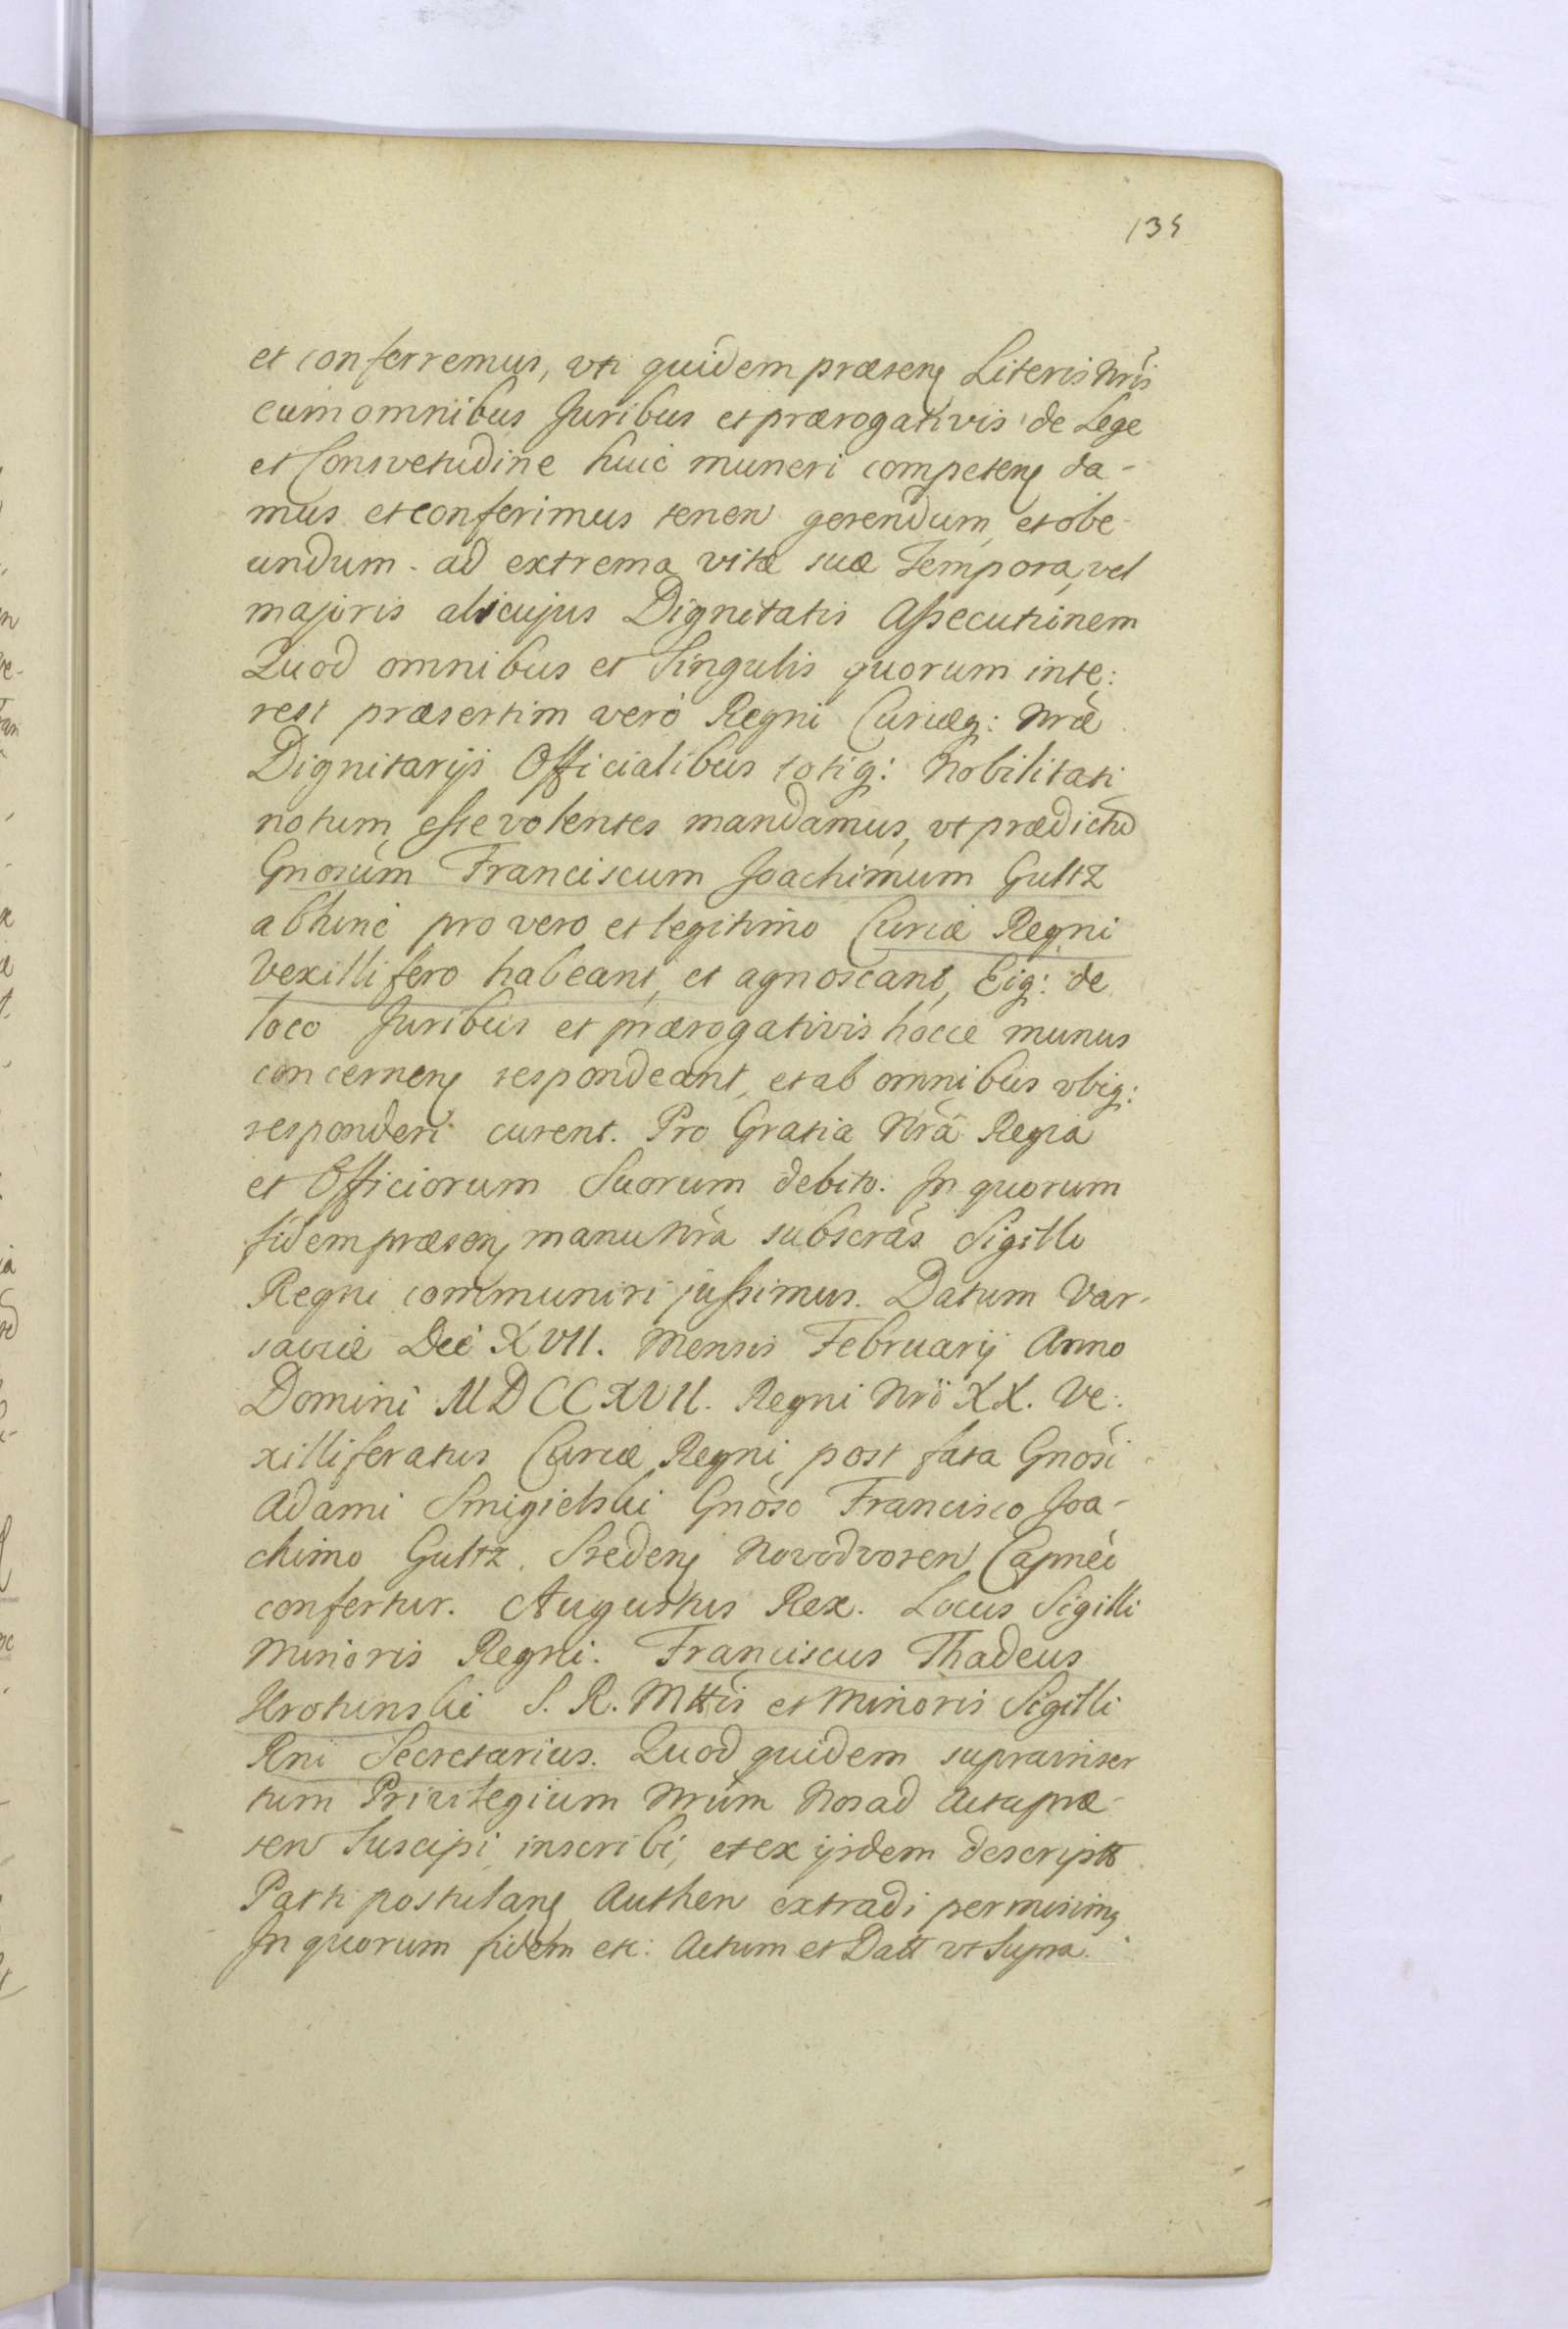 135
et conferremus, vti quidem præsenę Literis Nrīs
cum omnibus Juribus et prærogativis de Lege
et Consvetudine huic muneri competenę da-
mus et conferimus tenen gerendum et obe-
undum ad extrema vitæ suæ tempora, vel
majoris alicujus Dignitatis Assecutiōnem
Quod omnibus et Singulis quorum inte:
rest præsertim vero Regni Curiæq: Nræ
Dignitarijs Officialibus totiq: Nobilitati
notum esse volentes mandamus, vt prædictū
Gnosum Franciscum Joachimum Gultz
abhinc pro vero et legitimo Curiæ Regni
Vexillifero habeant, et agnoscant, Eiq: de
loco Juribus et prærogativis hocce munus
concernenę respondeant, et ab omnibus vbiq:
responderi curent. Pro Gratia Nrā Regia
et Officiorum Suorum debito. In quorum
fidem præsenę manu Nrā subscrās Sigillo
Regni communiri jussimus. Datum Var-
saviæ Die XVII. Mensis Februarij Anno
Domini MDCCXVII. Regni Nri XX. Ve:
xilliferatus Curiæ Regni post fata Gnosi
Adami Smigielski Gnoso Francisco Joa-
chimo Gultz Stedenę Novodvoren Capneo
confertur. Augustus Rex. Locus Sigilli
Minoris Regni. Franciscus Thadeus
S. R. Mttis et Minoris Sigilli
Rni Secretarius. Quod quidem suprainser
tum Privilegium Nrum Nos ad Acta præ-
sen Suscipi inscribi, et ex ijsdem descriptt
Parti postulanę Authen extradi permisimꝰ
In quorum fidem etc: Actum et Datt vt Supra.